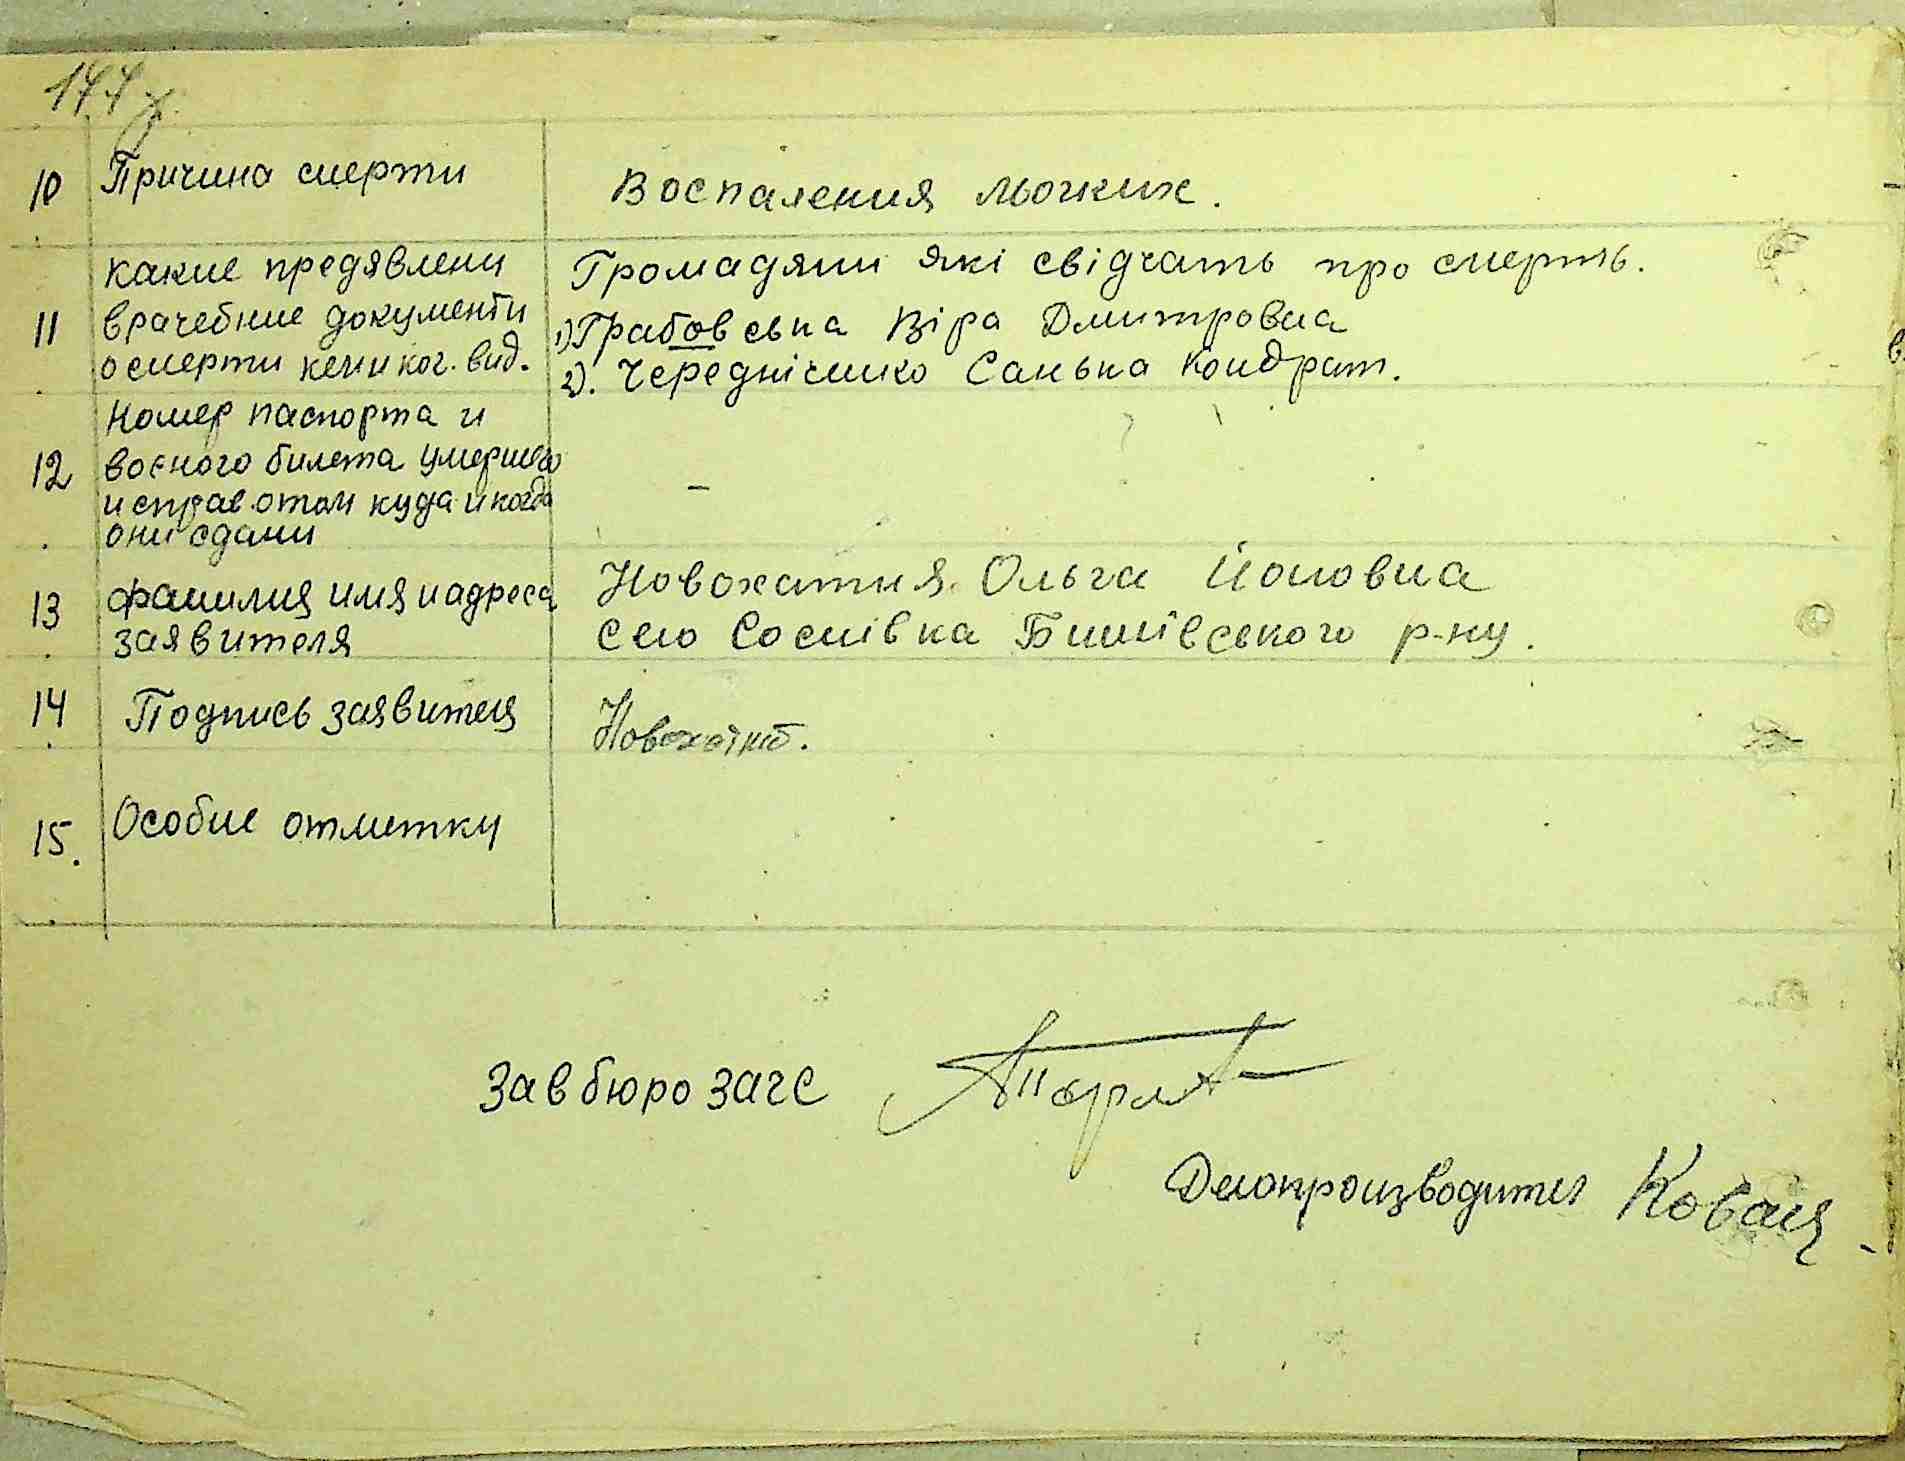 10 Причина смерти
Воспаления льогких.
11 какие предявлени
врачебние документи
о смерти кем и ког. вид.
Громадяни які свідчать про смерть.
1) Грабовська Віра Дмитровна
2). Череднічинко Санька Кондрат.
12 Номер паспорта и
воєного билета умершего
и справ. о том куда и когда
они сдани
-
13 фамилия имя и адреса
заявителя
Новохатня Ольга Йоповна
село Соснівка Бишівського р-ну.
14 Подпись заявителя
Новохатня.
15. Особие отметки
Зав бюро загс
Делопроизводител Коваль